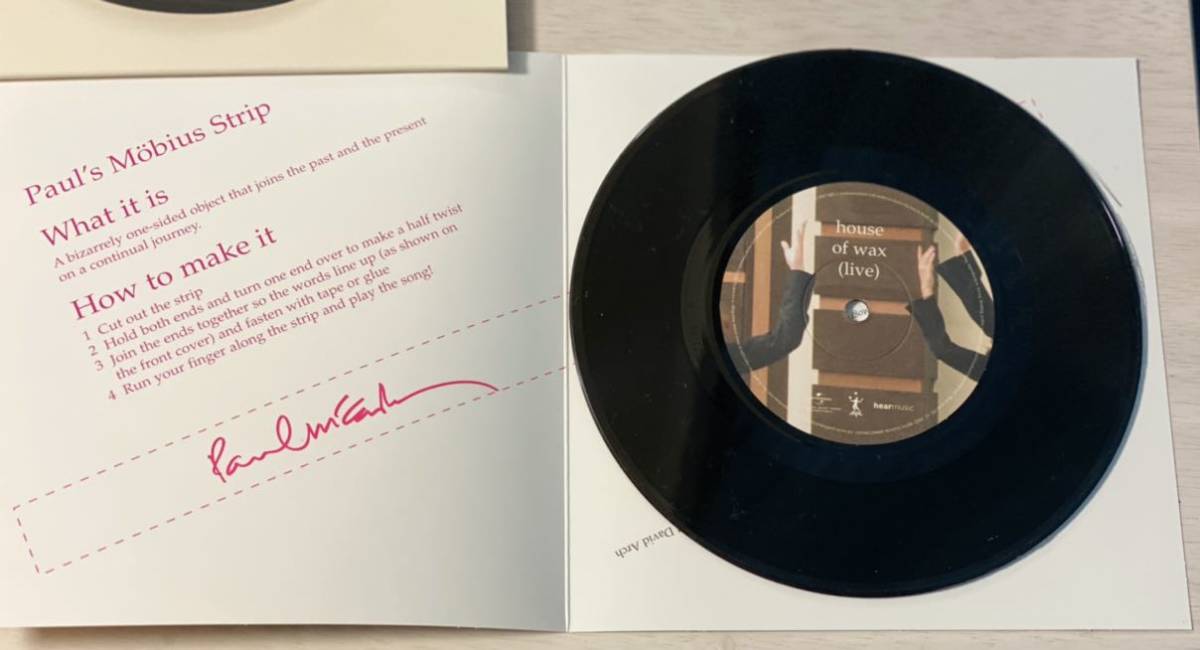 Paul's Möbius Strip
What it is
A bizarrely one-sided object that joins the past and the present
on a continual journey.
How to make it
1 Cut out the strip
2 Hold both ends and turn one end over to make a half twist
3 Join the ends together so the words line up (as shown on
the front cover) and fasten with tape or glue
4 Run your finger along the strip and play the song!
Paul McCartney
house
of wax
(live)
hearmusic
David Arch